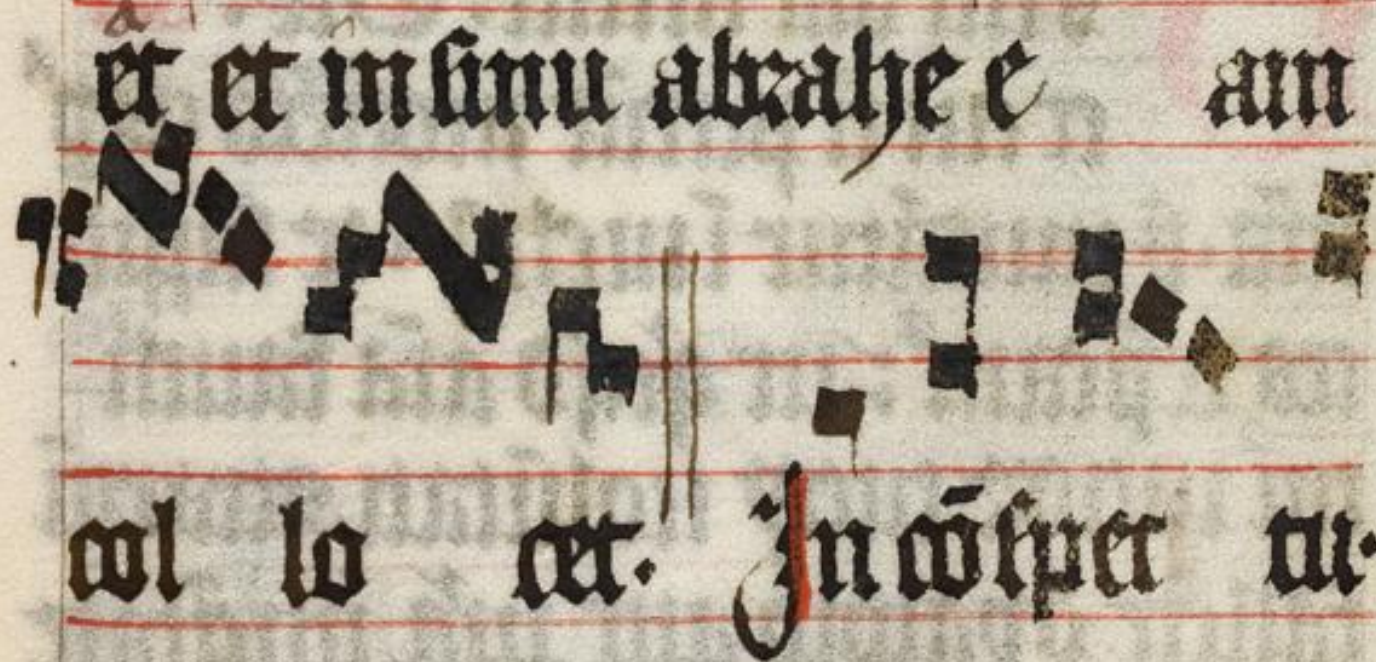 et et in sinu abrahe e am
col lo cet. In cōspec tu.